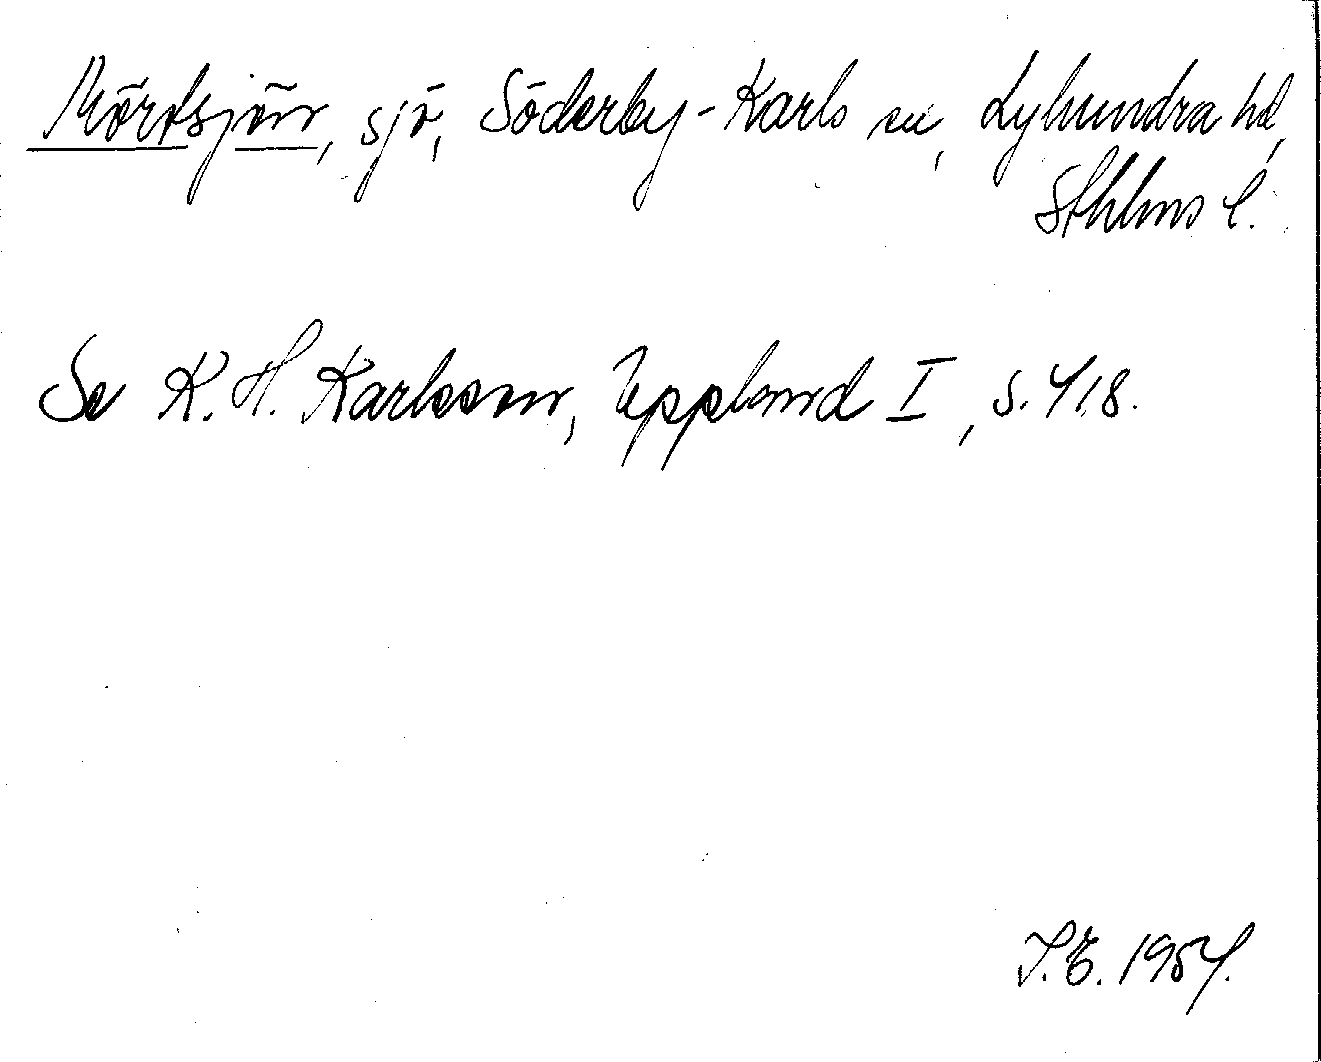 Mörtsjön, sjö, Söderby-Karls sn, Lyhundra hd,
Sthlms l.
Se K. H. Karlsson, Uppland I, s. 418.
I.E. 1954.